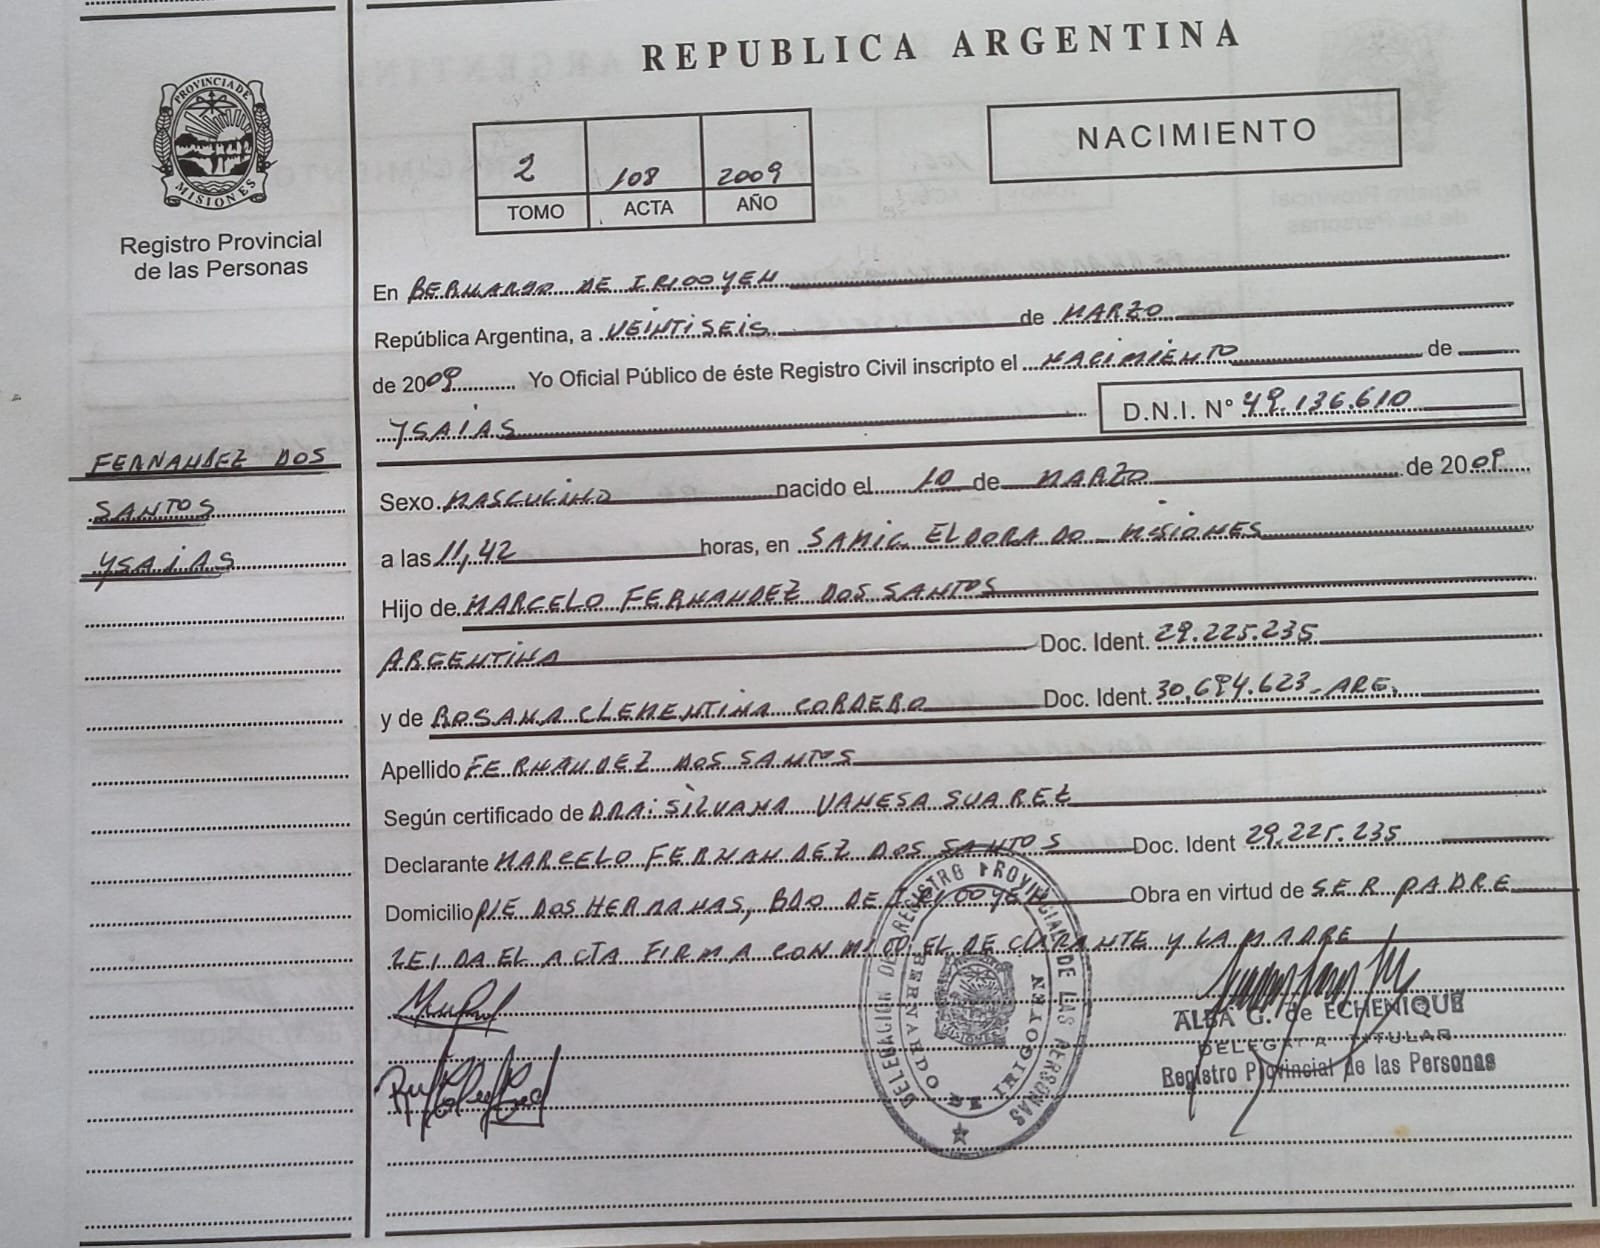 REPUBLICA ARGENTINA
PROVINCIA DE
MISIONES
Registro Provincial
de las Personas
2 108 2009
TOMO ACTA AÑO
NACIMIENTO
En BERNARDO DE IRIGOYEN
República Argentina, a VEINTISEIS de MARZO
de 2009 Yo Oficial Público de éste Registro Civil inscripto el NACIMIENTO de
YSAIAS D.N.I. Nº 49.136.610
FERNANDEZ DOS
SANTOS
YSAIAS
Sexo MASCULINO nacido el 10 de MARZO de 2009
a las 11,42 horas, en SAMIC ELDORADO - MISIONES
Hijo de MARCELO FERNANDEZ DOS SANTOS
ARGENTINA Doc. Ident. 29.225.235
y de ROSANA CLEMENTINA CORDERO Doc. Ident. 30.694.623 - ARG.
Apellido FERNANDEZ DOS SANTOS
Según certificado de DRA: SILVANA VANESA SUAREZ
Declarante MARCELO FERNANDEZ DOS SANTOS Doc. Ident 29.225.235
Domicilio PJE DOS HERMANAS, BDO DE IRIGOYEN Obra en virtud de SER PADRE
LEIDA EL ACTA FIRMA CONMIGO EL DECLARANTE Y LA MADRE
DELEGACION DE REGISTRO PROVINCIAL DE LAS PERSONAS
BERNARDO DE IRIGOYEN
ALBA G. de ECHENIQUE
DELEGADA TITULAR
Registro Provincial de las Personas